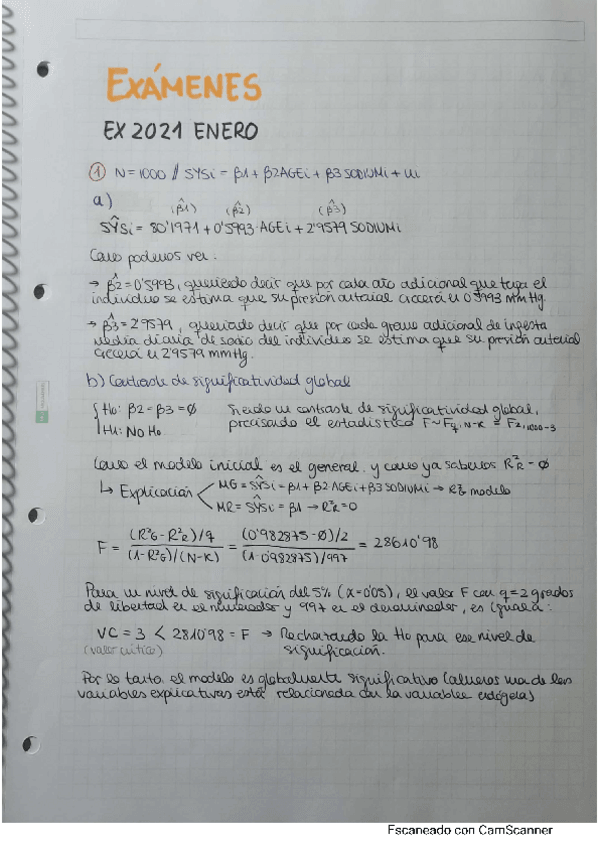 EXÁMENES
EX 2021 ENERO
① N=1000 // SYSi = β1 + β2AGEi + β3 SODIUMi + ui
a)
(β̂1) (β̂2) (β̂3)
SŶSi = 80'1971 + 0'5993·AGEi + 2'9579 SODIUMi
Como podemos ver:
→ β̂2=0'5993, queriendo decir que por cada año adicional que tenga el
individuo se estima que su presión arterial crecerá en 0'5993 mmHg.
→ β̂3=2'9579, queriendo decir que por cada gramo adicional de ingesta
media diaria de sodio del individuo se estima que su presión arterial
crecerá en 2'9579 mmHg.
b) Contraste de significatividad global
H0: β2=β3=Ø Siendo un contraste de significatividad global,
H1: NO H0 precisando el estadístico F ~ Fq, N-K = F2, 1000-3
Como el modelo inicial es el general y como ya sabemos R²R=Ø
↳ Explicación
MG = SŶSi = β1 + β2 AGEi + β3 SODIUMi → R² modelo
MR = SŶSi = β1 → R²R=0
F = (R²G - R²R)/q / (1-R²G)/(N-K) = (0'982875-Ø)/2 / (1-0'982875)/997 = 28610'98
Para un nivel de significación del 5% (α=0'05), el valor F con q=2 grados
de libertad en el numerador y 997 en el denominador, es igual a:
VC = 3 < 2810'98 = F → Rechazando la H0 para ese nivel de
(valor crítico) significación.
Por lo tanto el modelo es globalmente significativo (al menos una de las
variables explicativas está relacionada con la variable endógena)
Escaneado con CamScanner